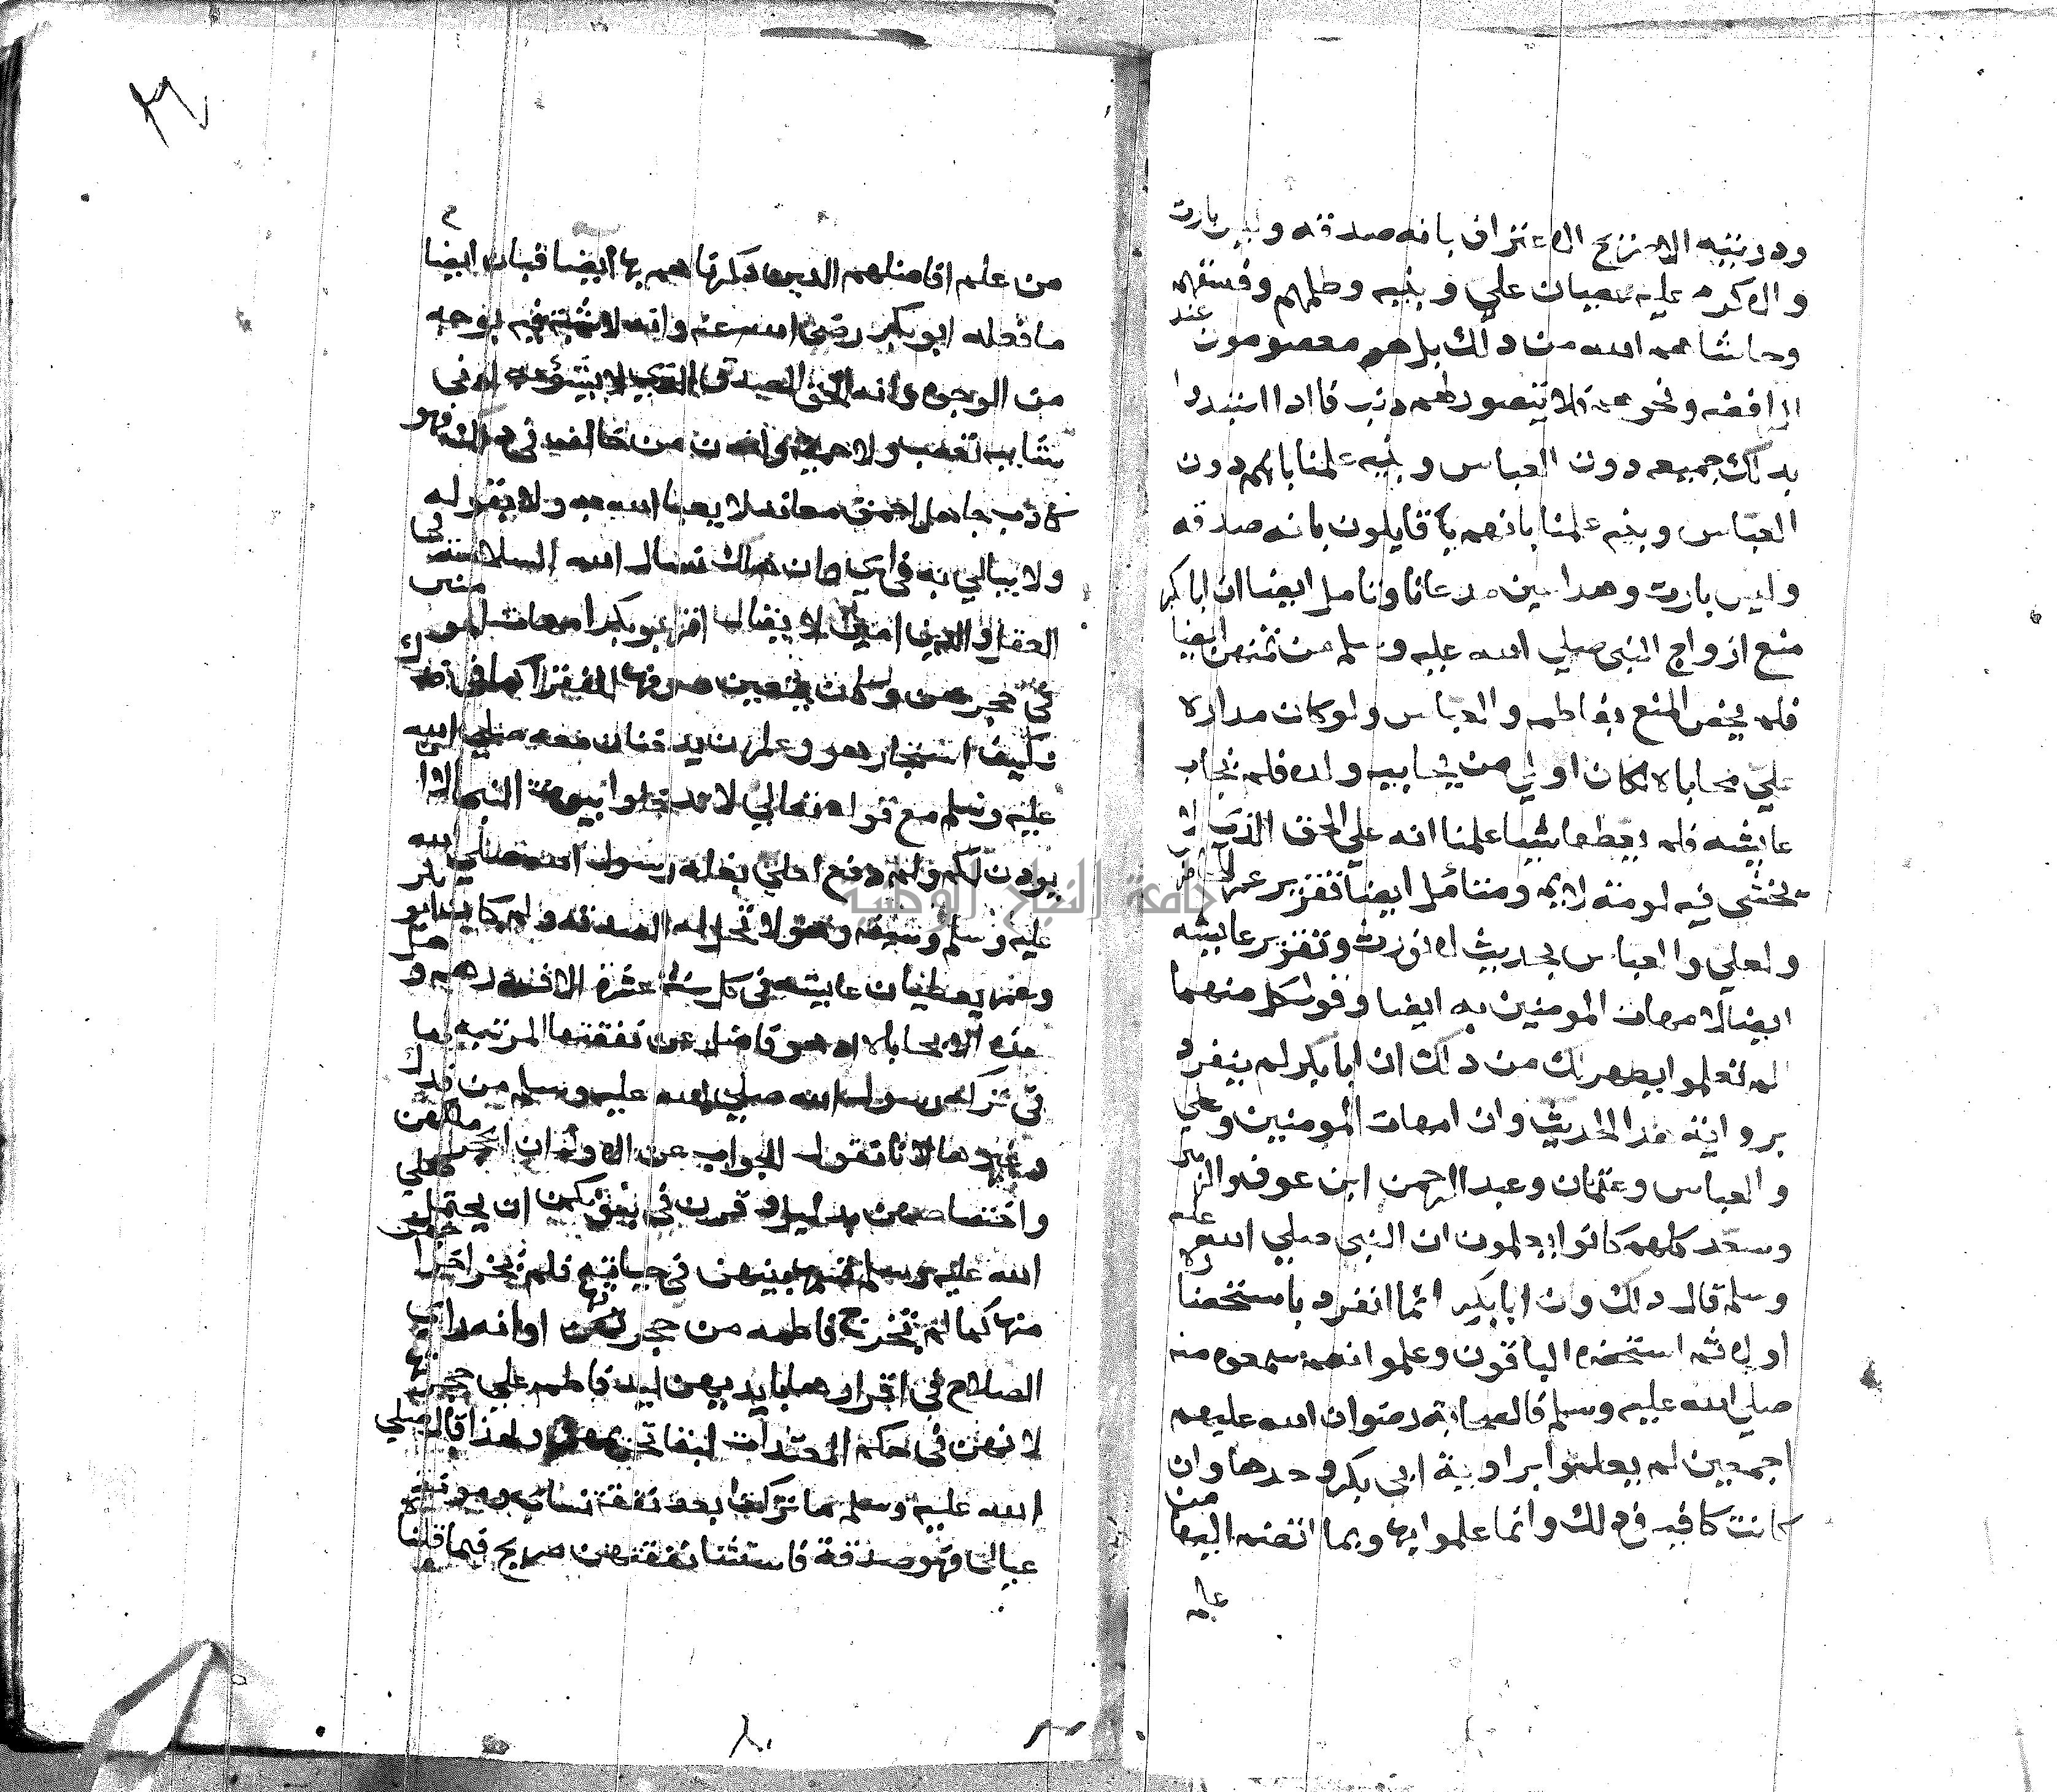 ودربنيه الا صريح الاعتراف بانه صدقه وليس بارث
والا كره عليه عصيان علي وبنيه وظلمهم وفسقهم
وحاشاهم الله من ذلك بل هم معصومون عند
الرافضه ونحوهم فلا يتصور لهم ذنب فاذا استبدوا
بذلك جميعه دون العباس وبنيه علمنا بانهم دون
العباس وبنيه علمنا بانهم قايلون بانه صدقه
وليس بارث وهذا عين مدعانا وتامل ايضا ان ابا بكر
منع ازواج النبي صلي الله عليه وسلم من ثمنهن ايضا
فلم يخص المنع بفاطمه والعباس ولو كان مداره
علي محاباه لكان اولي من يحابيه ولده فلم يحاب
عايشه فلم يعطها شيا علمنا انه علي الحق الذي لا
يخشى فيه لومة لايم وتامل ايضا تقرير عمر للحاضرين
ولعلي والعباس بحديث لا نورث وتقرير عايشه
ايضا لامهات المومنين به ايضا وقول كل منهما
الم تعلموا يظهر لك من ذلك ان ابا بكر لم ينفرد
بروايته هذا الحديث وان امهات المومنين وعلي
والعباس وعثمان وعبد الرحمن ابن عوف والزبير
وسعد كلهم كانوا يعلمون ان النبي صلي الله عليه
وسلم قال ذلك وان ابا بكر انما انفرد باستحضاره
اولا ثم استحضره الباقون وعلموا انهم سمعوه منه
صلي الله عليه وسلم فالصحابة رضوان الله عليهم
اجمعين لم يعلموا براوية ابي بكر وحدها وان
كانت كافيه في ذلك وانما علموا بها وبما انضم اليها من
علم
من علم افاضلهم الذين ذكرتاهم بها ايضا فبان ايضا
ما فعله ابو بكر رضي الله عنه وانه لا شبهة فيه بوجه
من الوجوه وانه الحق الصدق الذي لا يشوبه ادنى
شايبه تعصب ولا حمية وان من خالفه في ذلك فهو
كاذب جاهل احمق معاند لا يعبا الله به ولا بقوله
ولا يبالي به في اي واد هلك نسال الله السلامة في
العقل والدين امين لا يقال اقر ابو بكر امهات المومنين
في حجرهن ولم يتعين صرفها للفقرا كما في فدك
فكيف استجاز هو وعمر ان يدفنان معه صلي الله
عليه وسلم مع قوله تعالي لا تدخلوا بيوت النبي الا ان
يوذن لكم ولم دفع لعلي بغلة رسول الله صلي الله
عليه وسلم وسيفه وهو لا تحل له الصدقه ولم كان ابو بكر
وعمر يعطيان عايشه في كل سنه عشرة الاف درهم وهل
هذه الا محاباه اذ هو فاضل عن نفقتها المرتبه بما
في تركه رسول الله صلي الله عليه وسلم من فدك
وغيرها لانا نقول الجواب عن الاول ان الحجر ملكهن
واختصاصهن بدليل وقرن في بيوتكن ان يحتمل فعلي
الله عليه وسلم قسمها بينهن في حياته فلم يخرجن
منها كما لم تخرج فاطمه من حجرتها او انه راي
الصلاح في اقرارها بايديهن ليد فاطمه علي حجرتها
لانهن في حكم المعتدات لبقا تحريمهن ولهذا قال صلي
الله عليه وسلم ما تركت بعد نفقة نساي ومونة
عيالي فهو صدقة فاستثنا نفقتهن صريح فيما قلنا